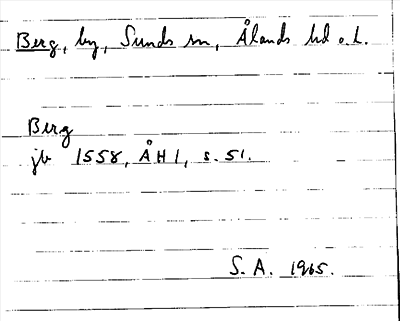 Berg, by, Sunds sn, Ålands hd o. L.
Berg
jb 1558, ÅH 1, s. 51.
S. A. 1965.